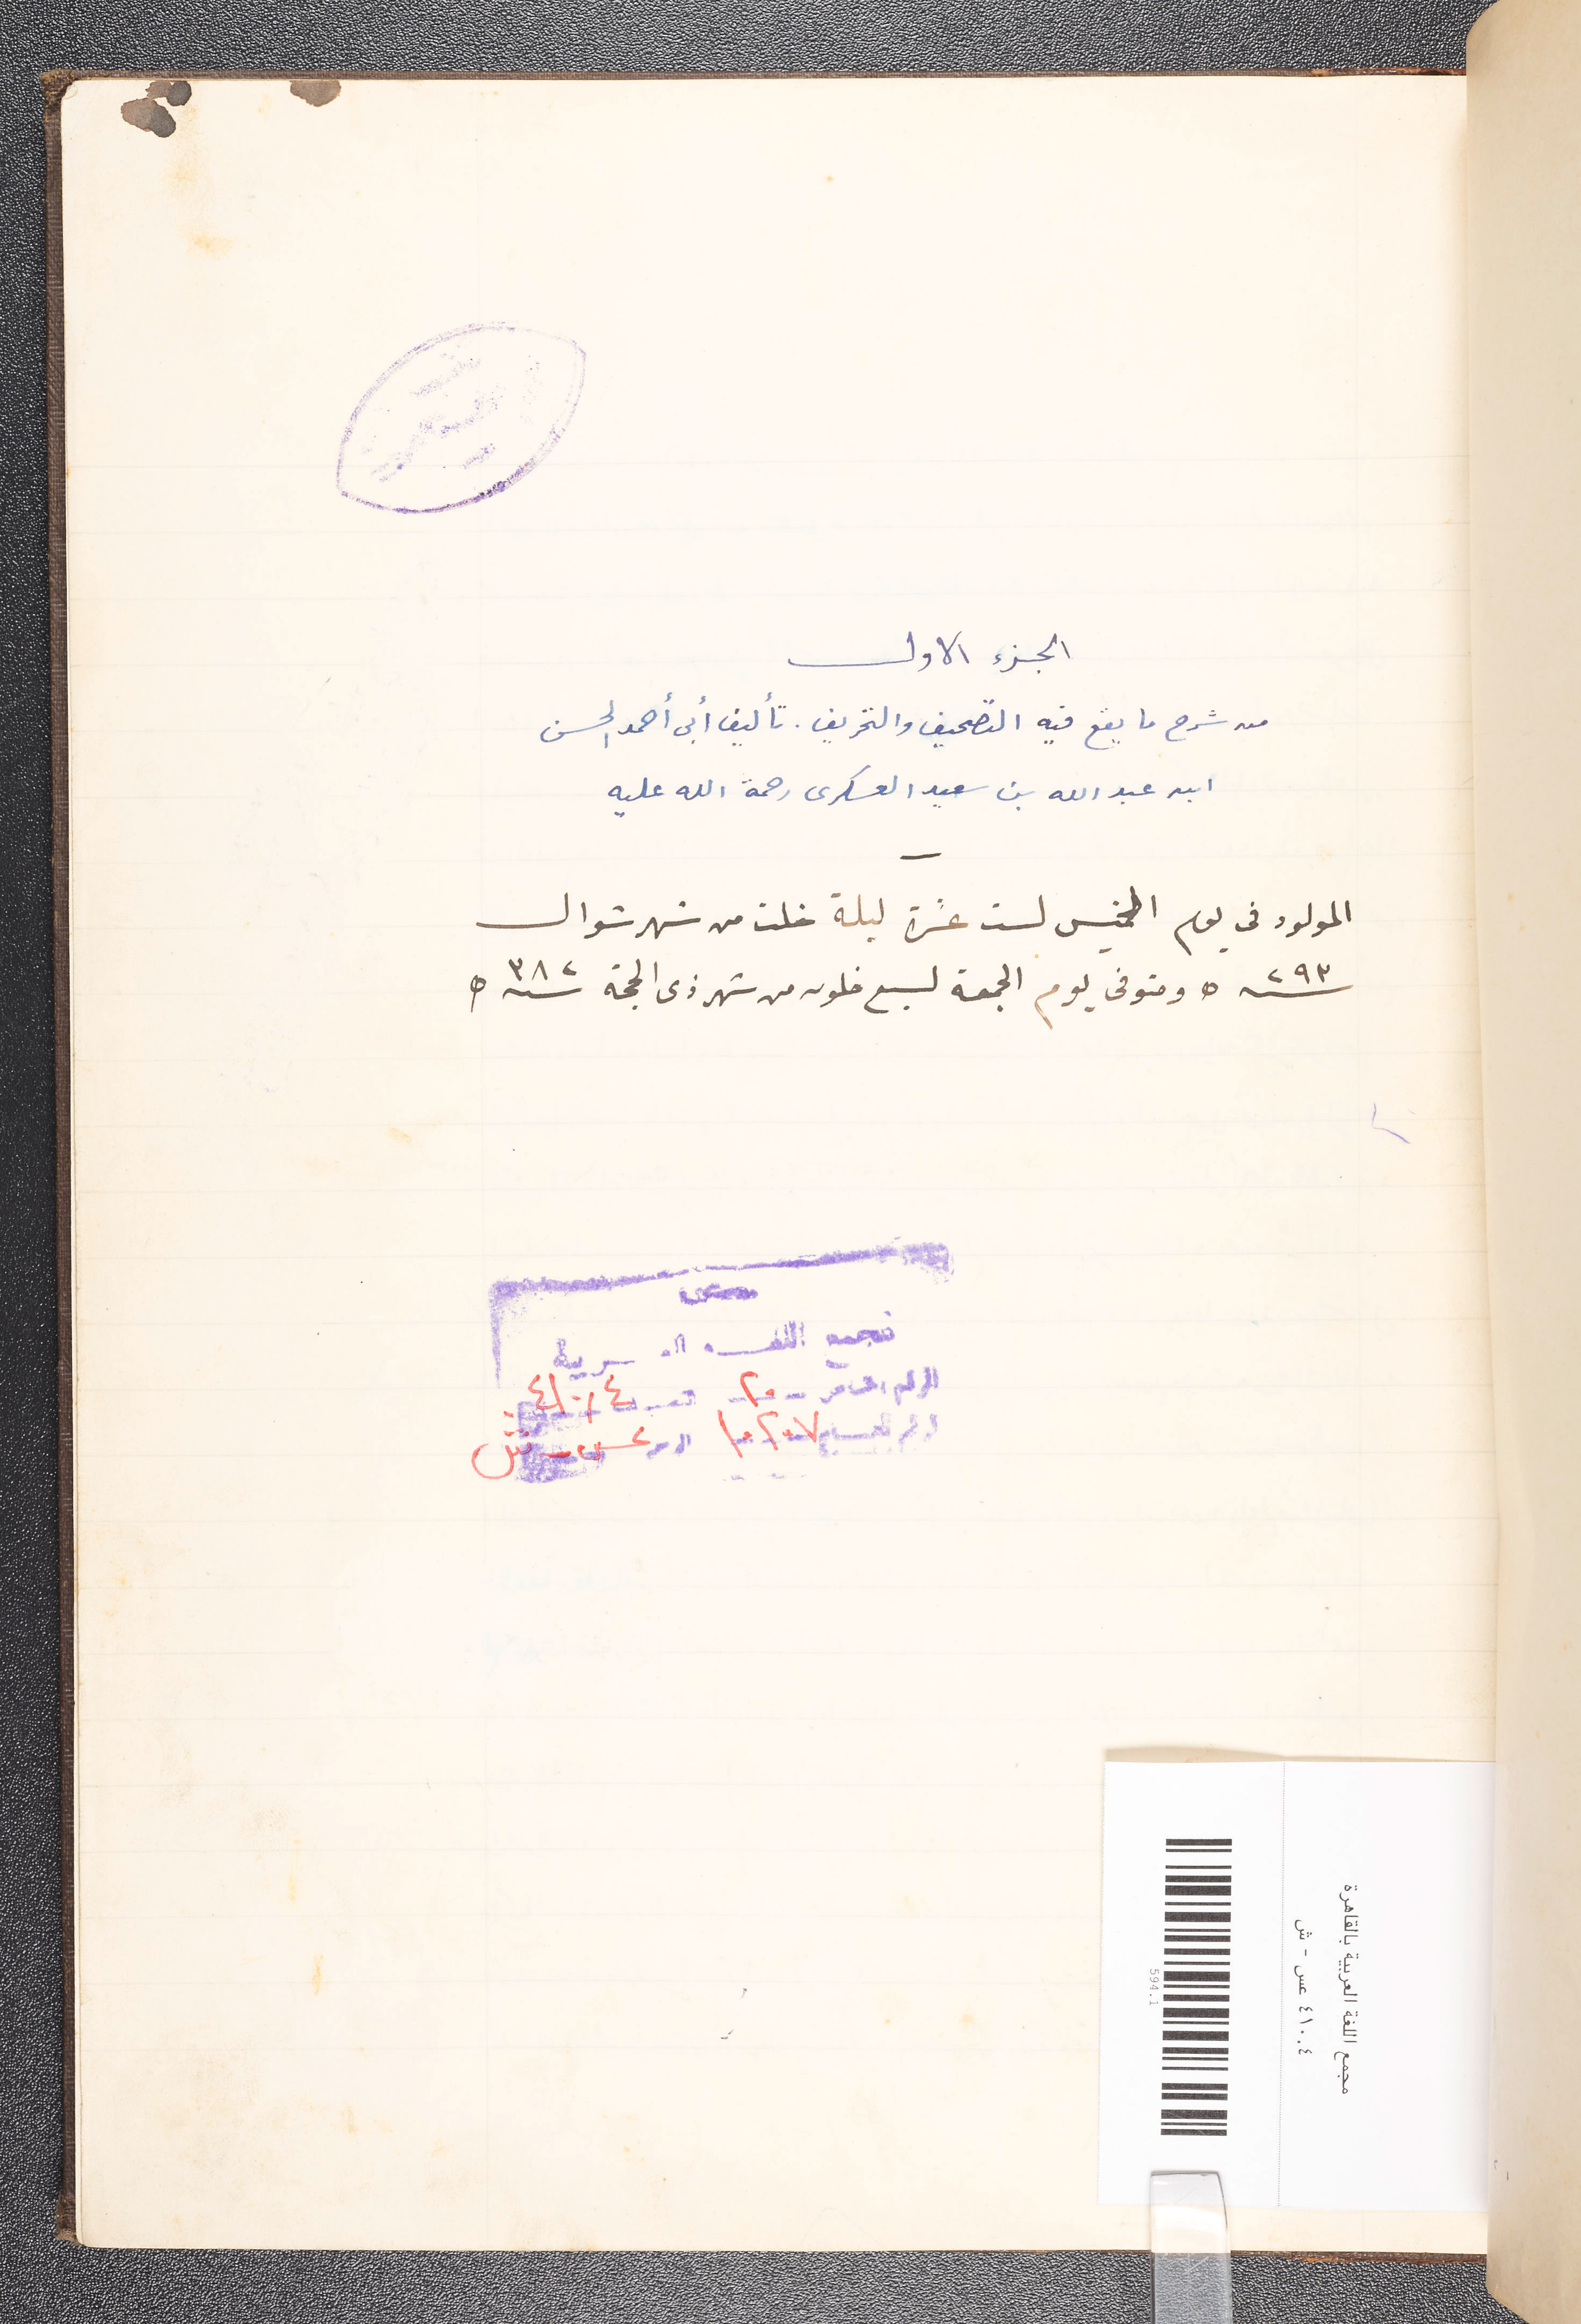 الجزء الاول
من شرح ما يقع فيه التصحيف والتحريف . تأليف أبى أحمد الحسن
ابن عبد الله بن سعيد العسكرى رحمة الله عليه
المولود فى يوم الخميس لست عشرة ليلة خلت من شهر شوال
سنة ٢٩٣ ه ومتوفى يوم الجمعة لسبع خلون من شهر ذى الحجة سنة ٣٨٢ ه
مجمع اللغة العربية
٢٠
٤١٠.٤
١٠٢٠٧
عس - ش
مجمع اللغة العربية بالقاهرة
٤١٠.٤ عس - ش
594.1